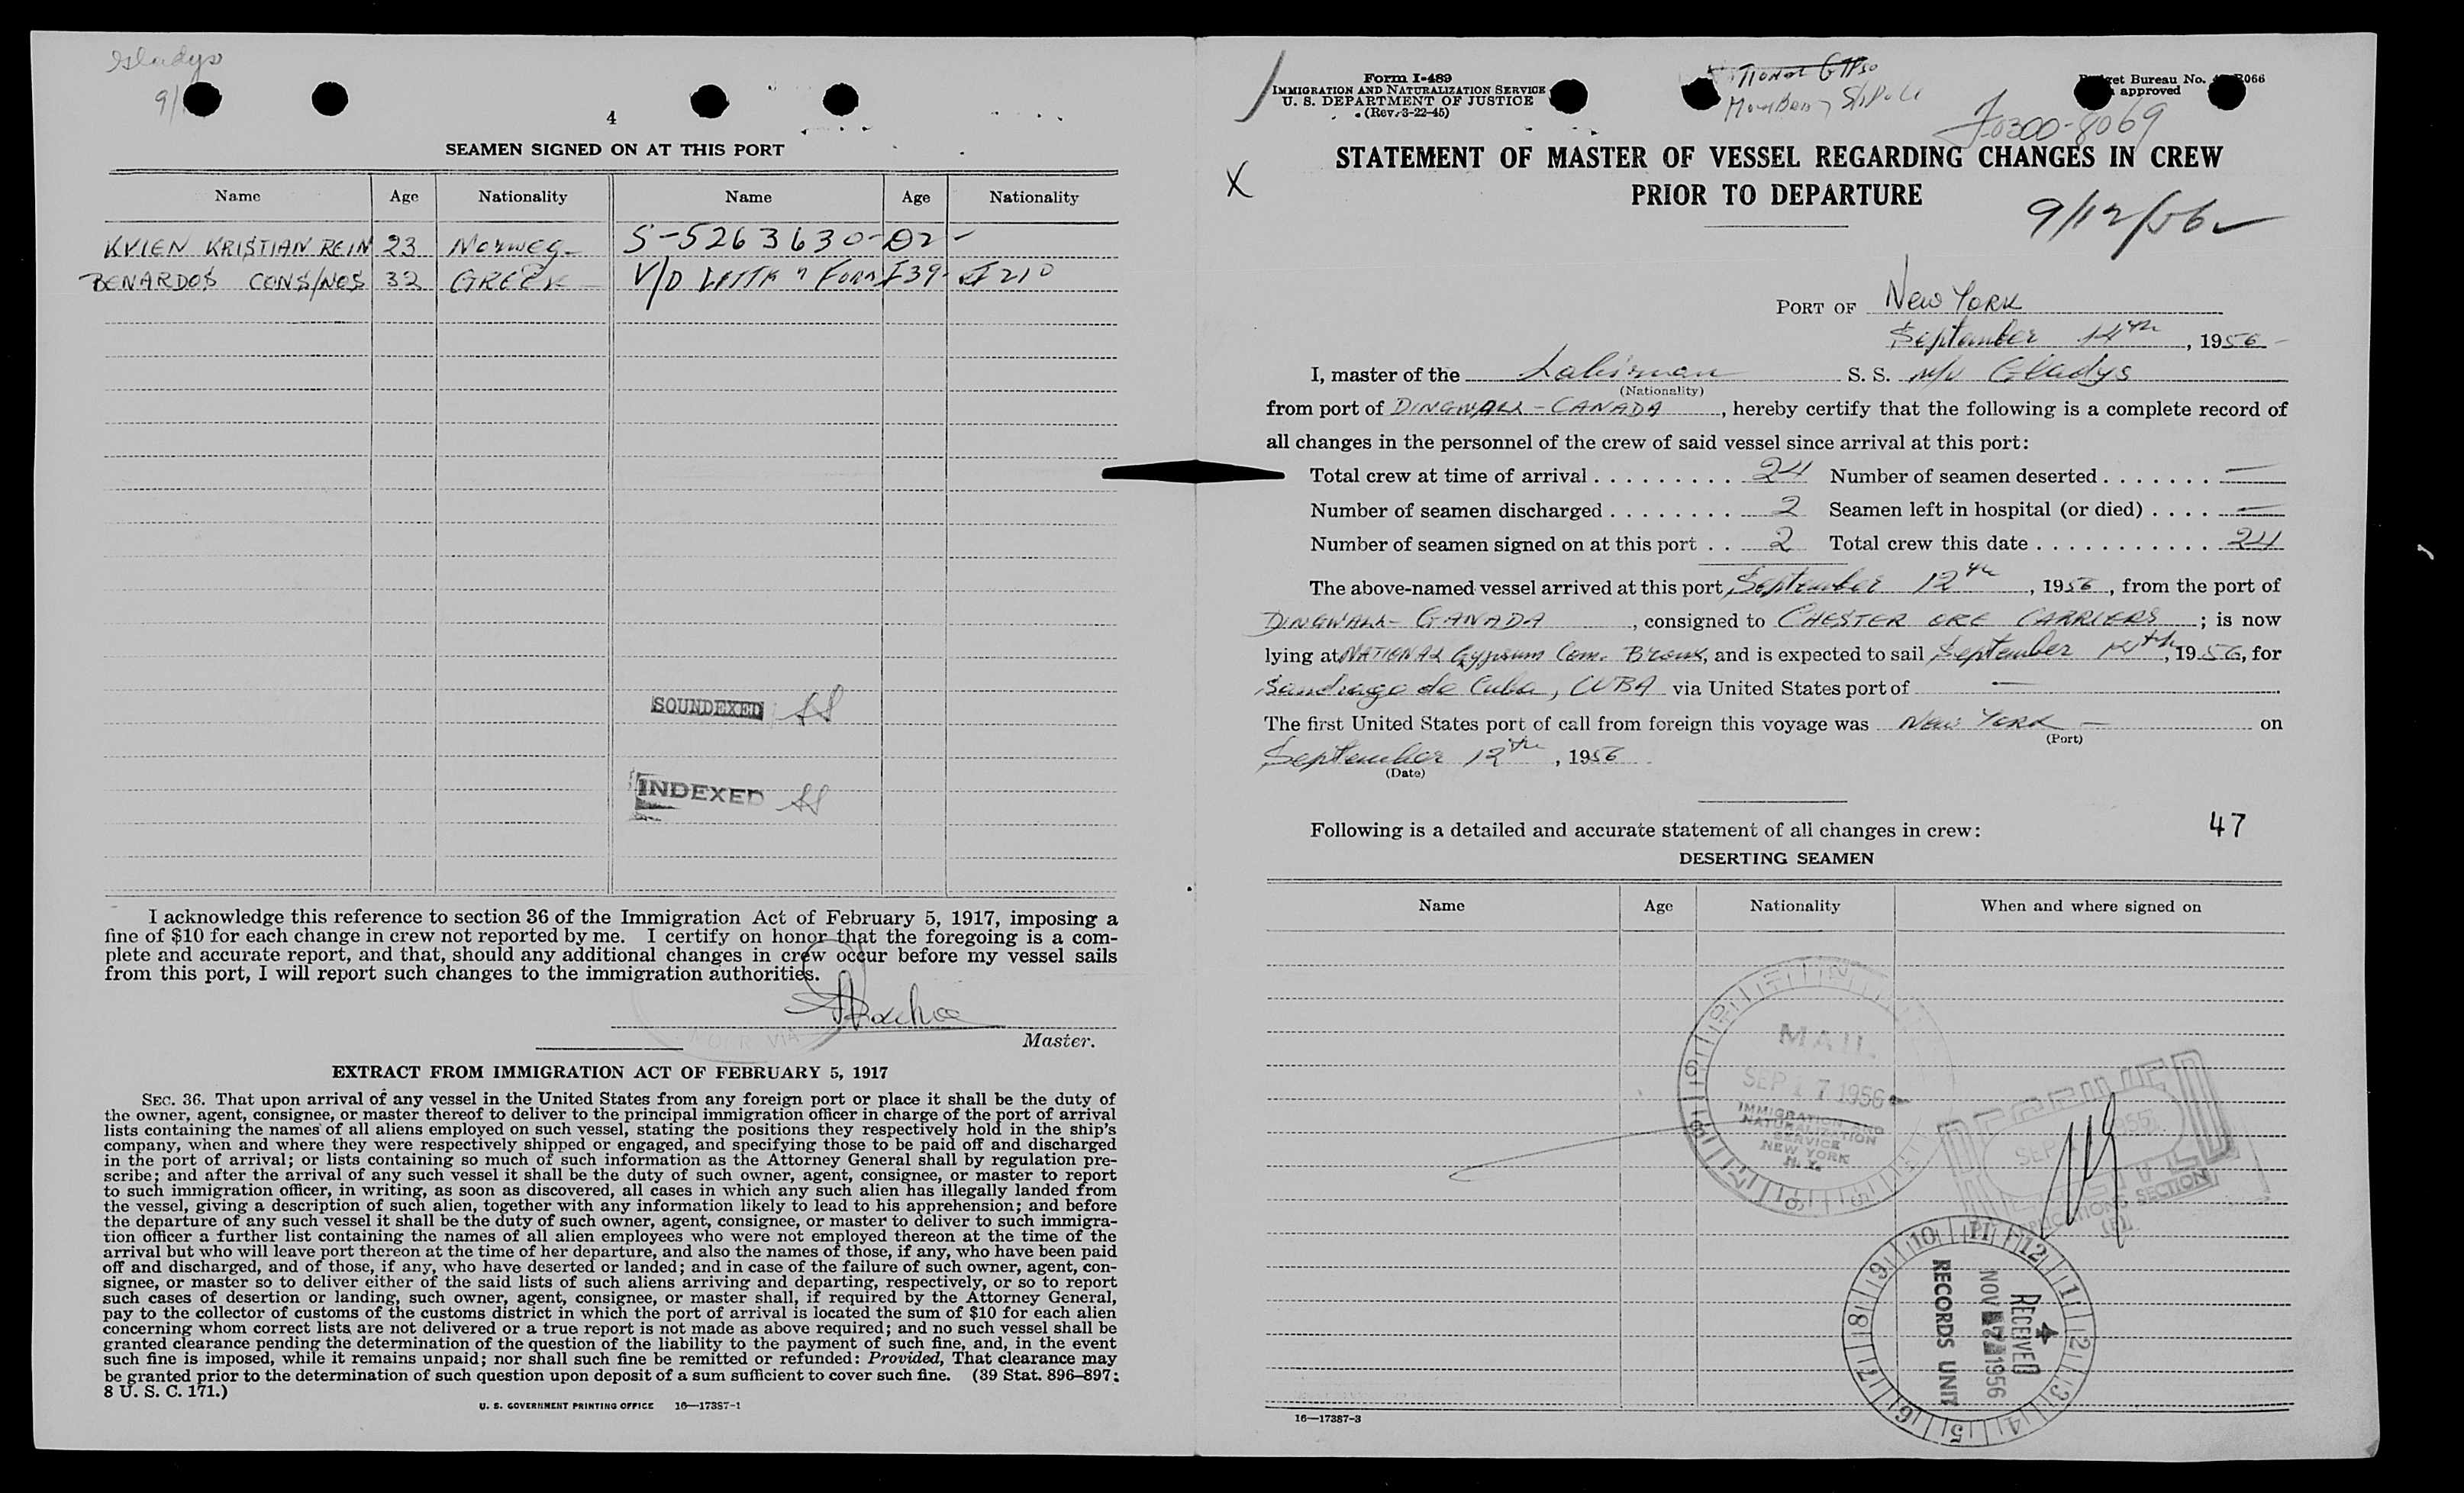 Gladys
9/
4
SEAMEN SIGNED ON AT THIS PORT
Name Age Nationality Name Age Nationality
KVIEN KRISTIAN REIN 23 Norweg- S-5263630-D2-
BENARDOS CONS/NOS 32 GREEK V/D
SOUNDEXED
INDEXED
I acknowledge this reference to section 36 of the Immigration Act of February 5, 1917, imposing a
fine of $10 for each change in crew not reported by me. I certify on honor that the foregoing is a com-
plete and accurate report, and that, should any additional changes in crew occur before my vessel sails
from this port, I will report such changes to the immigration authorities.
Master.
EXTRACT FROM IMMIGRATION ACT OF FEBRUARY 5, 1917
SEC. 36. That upon arrival of any vessel in the United States from any foreign port or place it shall be the duty of
the owner, agent, consignee, or master thereof to deliver to the principal immigration officer in charge of the port of arrival
lists containing the names of all aliens employed on such vessel, stating the positions they respectively hold in the ship's
company, when and where they were respectively shipped or engaged, and specifying those to be paid off and discharged
in the port of arrival; or lists containing so much of such information as the Attorney General shall by regulation pre-
scribe; and after the arrival of any such vessel it shall be the duty of such owner, agent, consignee, or master to report
to such immigration officer, in writing, as soon as discovered, all cases in which any such alien has illegally landed from
the vessel, giving a description of such alien, together with any information likely to lead to his apprehension; and before
the departure of any such vessel it shall be the duty of such owner, agent, consignee, or master to deliver to such immigra-
tion officer a further list containing the names of all alien employees who were not employed thereon at the time of the
arrival but who will leave port thereon at the time of her departure, and also the names of those, if any, who have been paid
off and discharged, and of those, if any, who have deserted or landed; and in case of the failure of such owner, agent, con-
signee, or master so to deliver either of the said lists of such aliens arriving and departing, respectively, or so to report
such cases of desertion or landing, such owner, agent, consignee, or master shall, if required by the Attorney General,
pay to the collector of customs of the customs district in which the port of arrival is located the sum of $10 for each alien
concerning whom correct lists are not delivered or a true report is not made as above required; and no such vessel shall be
granted clearance pending the determination of the question of the liability to the payment of such fine, and, in the event
such fine is imposed, while it remains unpaid; nor shall such fine be remitted or refunded: Provided, That clearance may
be granted prior to the determination of such question upon deposit of a sum sufficient to cover such fine. (39 Stat. 896-897;
8 U. S. C. 171.)
U. S. GOVERNMENT PRINTING OFFICE 16—17387-1
Form I-489
IMMIGRATION AND NATURALIZATION SERVICE
U. S. DEPARTMENT OF JUSTICE
(Rev. 3-22-45)
Bureau No. 066
approved
0300-8069
STATEMENT OF MASTER OF VESSEL REGARDING CHANGES IN CREW
X
PRIOR TO DEPARTURE
9/12/56
PORT OF New York
September 14th, 1956
I, master of the S. S. M/V Gladys
(Nationality)
from port of DINGWALL - CANADA, hereby certify that the following is a complete record of
all changes in the personnel of the crew of said vessel since arrival at this port:
Total crew at time of arrival 24 Number of seamen deserted —
Number of seamen discharged 2 Seamen left in hospital (or died) —
Number of seamen signed on at this port 2 Total crew this date 24
The above-named vessel arrived at this port September 12th, 1956, from the port of
DINGWALL - CANADA, consigned to CHESTER ORE CARRIERS; is now
lying at NATIONAL Gypsum Com. Bronx, and is expected to sail September 14th, 1956, for
Sandiago de Cuba, CUBA via United States port of —
The first United States port of call from foreign this voyage was New York - on
(Port)
September 12th, 1956
(Date)
Following is a detailed and accurate statement of all changes in crew: 47
DESERTING SEAMEN
Name Age Nationality When and where signed on
MAIL
SEP 17 1956
IMMIGRATION AND
NATURALIZATION
SERVICE
NEW YORK
N. Y.
RECEIVED
RECEIVED
NOV 1956
RECORDS UNIT
16—17387-3